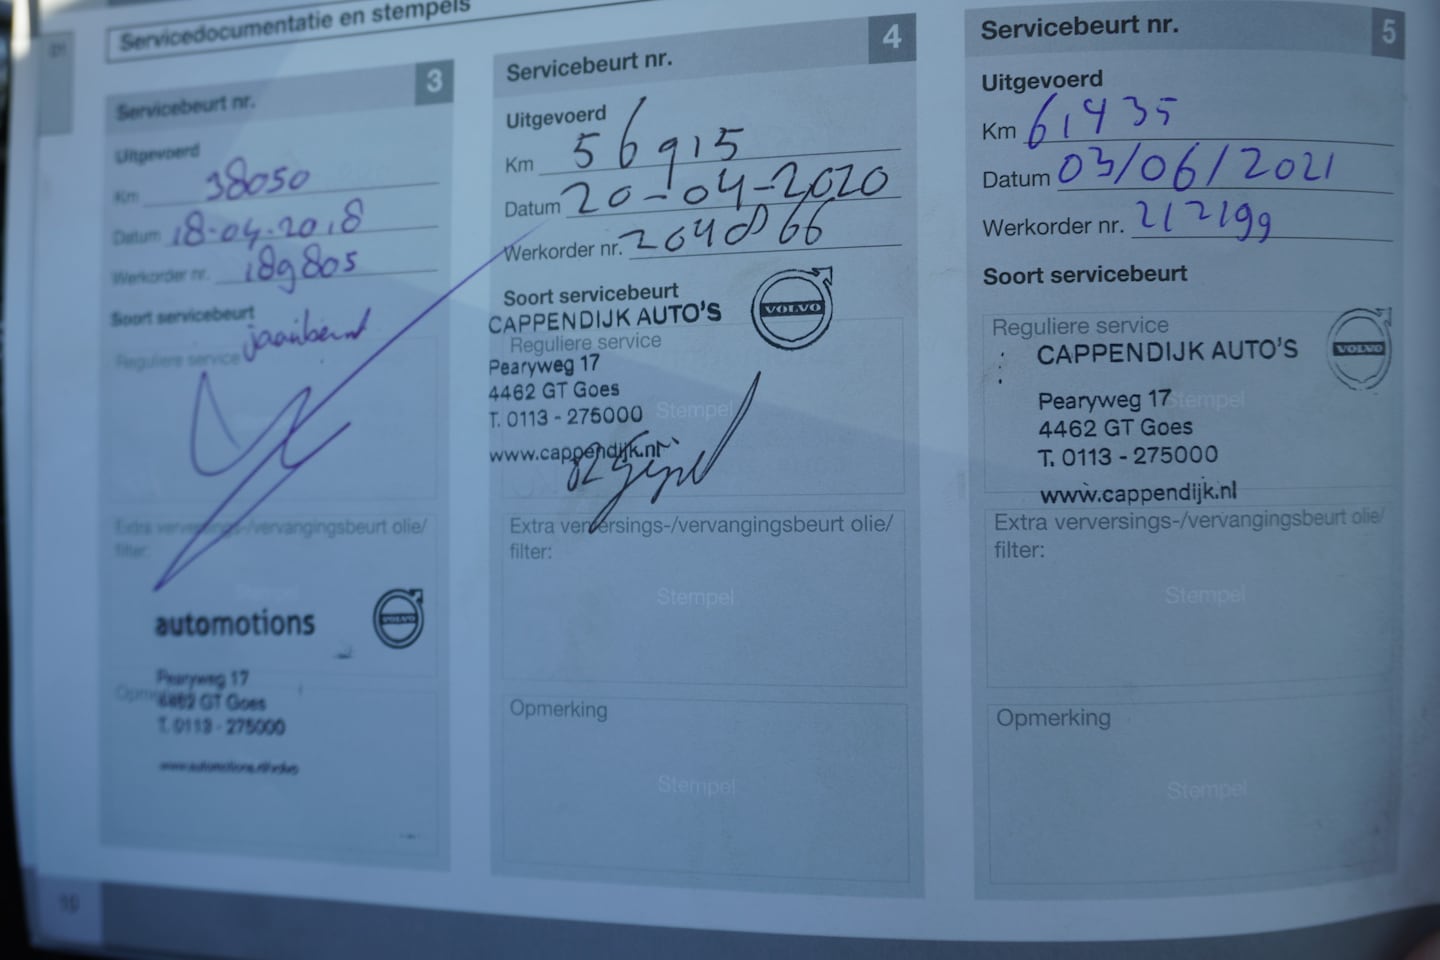 Servicedocumentatie en stempels
Servicebeurt nr. 3
Uitgevoerd
Km 38050
Datum 18-04-2018
Werkorder nr. 189805
Soort servicebeurt
Reguliere service
Extra verversings-/vervangingsbeurt olie/
filter:
automotions
VOLVO
Pearyweg 17
4462 GT Goes
T. 0113 - 275000
www.automotions.nl/volvo
10
Servicebeurt nr. 4
Uitgevoerd
Km 56915
Datum 20-04-2020
Werkorder nr. 204866
Soort servicebeurt
CAPPENDIJK AUTO'S
VOLVO
Reguliere service
Pearyweg 17
4462 GT Goes
Stempel
T. 0113 - 275000
www.cappendijk.nl
Extra verversings-/vervangingsbeurt olie/
filter:
Stempel
Opmerking
Stempel
Servicebeurt nr. 5
Uitgevoerd
Km 61435
Datum 03/06/2021
Werkorder nr. 212199
Soort servicebeurt
Reguliere service
CAPPENDIJK AUTO'S
VOLVO
Pearyweg 17
Stempel
4462 GT Goes
T. 0113 - 275000
www.cappendijk.nl
Extra verversings-/vervangingsbeurt olie/
filter:
Stempel
Opmerking
Stempel